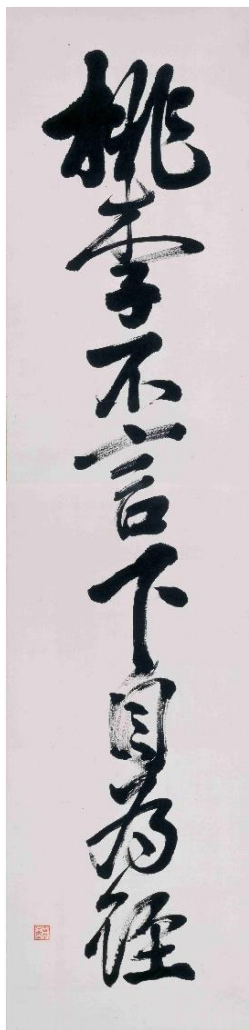 桃李不言下自為径